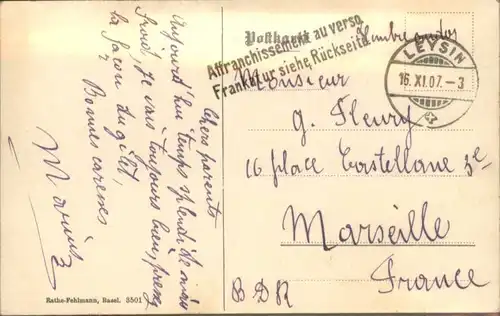 Chers parents
Aujourd'hui temps splendide mais
froid, je vais toujours bien, prenez
la façon du gilet,
Bonnes caresses
Marius
Postkarte
Timbre au dos
Affranchissement au verso.
Frankatur siehe Rückseite.
LEYSIN
16.XI.07.-3
Monsieur
G. Fleury
16 place Castellane 3e
Marseille
France
BDR
Rathe-Fehlmann, Basel. 3501